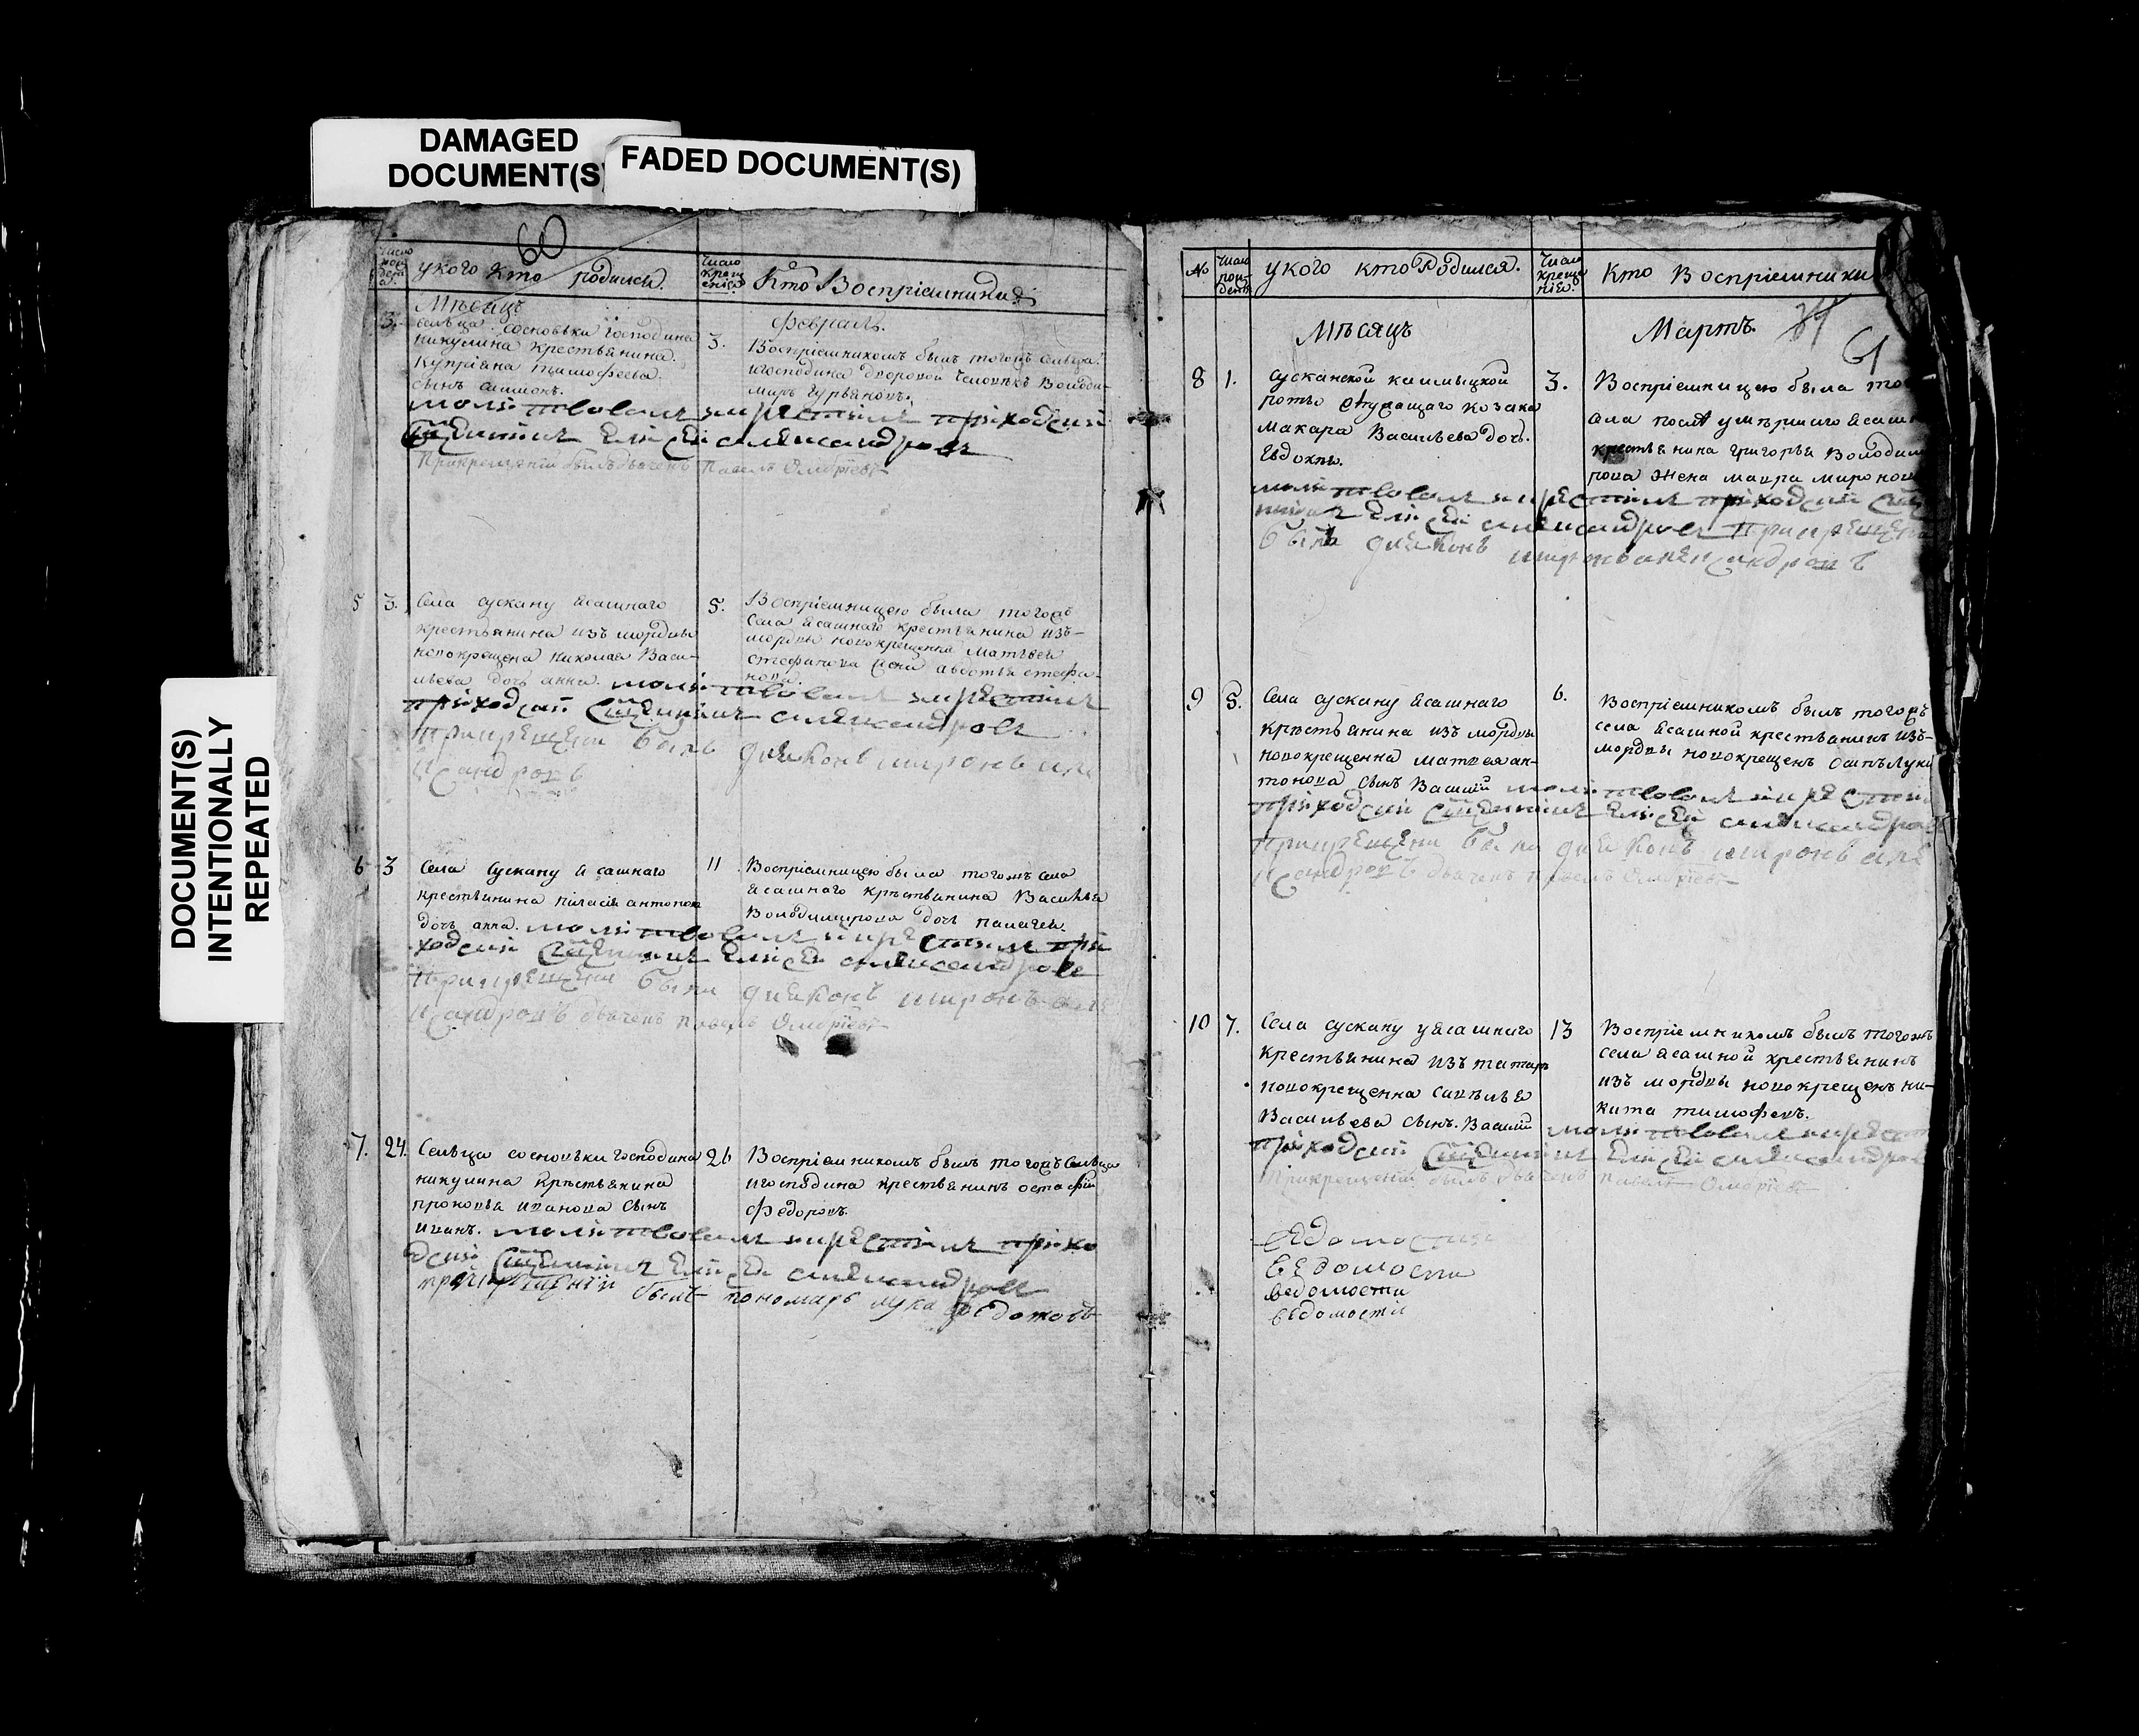 DAMAGED
DOCUMENT(S)
FADED DOCUMENT(S)
DOCUMENT(S)
INTENTIONALLY
REPEATED
60
Число рождения. у кого кто родился. Число крещенія. Кто Воспріемники
Мѣсяцъ Февраль.
3. сельца сосновки господина
никулина крестьянина
Купріяна тимофеева
сынъ симионъ.
3. Воспріемникомъ былъ тогожъ сельца
игосподина дворовой человѣкъ Володи-
миръ гурьяновъ.
молитвовалъ икрестилъ приходскій
Священникъ Елисей александровъ
Прикрещеніи былъ дьячекъ Павелъ
5 3. Села сускану ясашнаго
крестьянина изъ мордвы
новокрещена николая Васи-
льева дочь анна.
5. Воспріемницею была тогожъ
села ясашнаго крестьянина изъ-
мордвы новокрещенна матвея
стефанова жена авдотья стефа-
нова.
молитвовалъ икрестилъ
приходскій Священникъ александровъ
прикрещени былъ диаконъ миронъ але
ксандровъ
6 3 Села Сускану ясашнаго
крестьянина антонова
дочь анна.
11 Воспріемницею была тогожъ села
ясашнаго крестьянина Василья
Володимирова дочь пелагея.
молитвовалъ икрестилъ при
ходскій Священникъ Елисей александровъ
прикрещени были диаконъ миронъ але
ксандровъ дьячекъ павелъ
7. 24. Сельца сосновки господина
никулина крестьянина
прокофья иванова сынъ
иванъ.
26 Воспріемникомъ былъ тогожъ сельца
игосподина крестьянинъ остафій
Федоровъ
молитвовалъ икрестилъ прихо
дскій Священникъ Елисей александровъ
прикрещеніи былъ пономарь лука федотовъ
№ Число рожден. у кого кто Родился. Число крещенія. Кто Воспріемники
Мѣсяцъ Мартъ.
61
8 1. сусканской калмыцкой
роты служащаго козака
макара Васильева дочь.
Евдокия.
3. Воспріемницею была то
села послѣ умершаго ясаш
крестьянина григорья Володим
рова жена мавра миронов
молитвовалъ икрестилъ приходскій Свще
нникъ Елисей александровъ прикрещени
былъ диаконъ миронъ александровъ
9 5. Села сускану ясашнаго
крестьянина изъ мордвы
новокрещенна матвея ан-
тонова сынъ Василій
6. Воспріемникомъ былъ тогожъ
села ясашной крестьянинъ изъ-
мордвы новокрещенъ осипъ Луки
молитвовалъ икрестилъ
приходскій Священникъ Елисей александровъ
прикрещени были диаконъ миронъ але
ксандровъ дьячекъ павелъ
10 7. Села сускану уясашнаго
крестьянина изъ татаръ
новокрещенна савелья
Васильева сынъ. Василій
13 Воспріемникомъ былъ тогожъ
села ясашной крестьянинъ
изъ мордвы новокрещенъ ни-
кита тимофеевъ.
молитвовалъ икрестилъ
приходскій Священникъ Елисей александровъ
Прикрещеніи былъ дьячекъ павелъ
ведомости
ведомости
ведомости